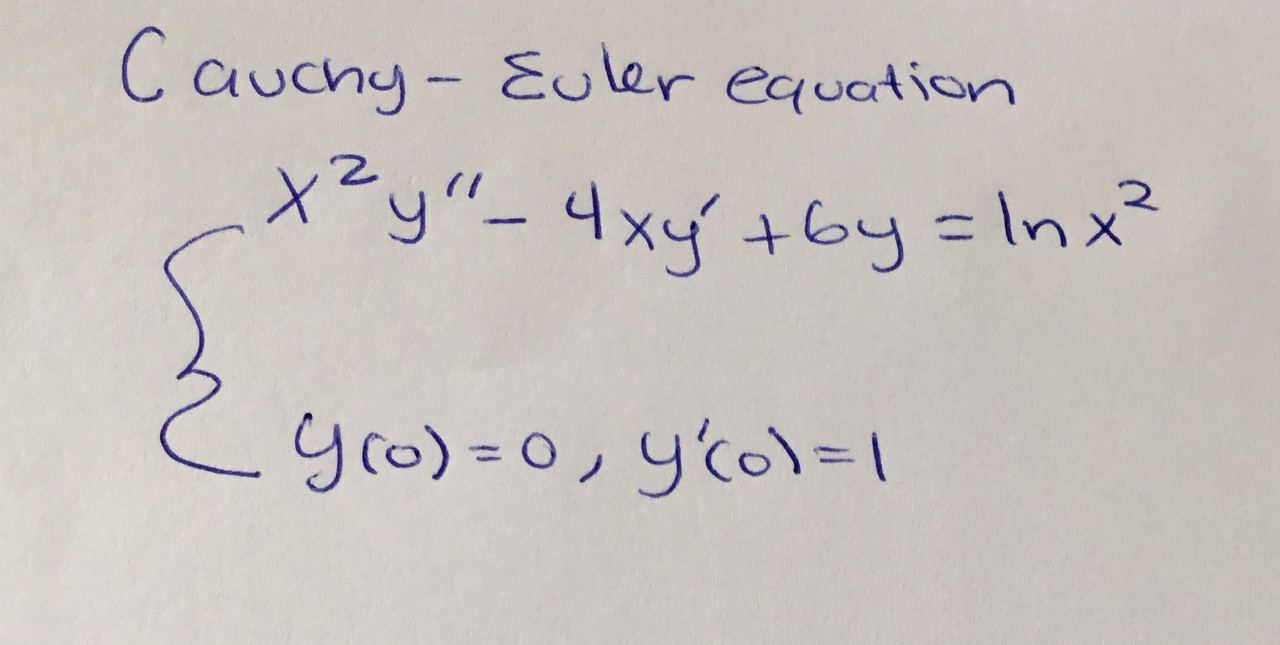 Cauchy - Euler equation
x²y″ - 4xy′ + 6y = ln x²
y(0) = 0, y′(0) = 1